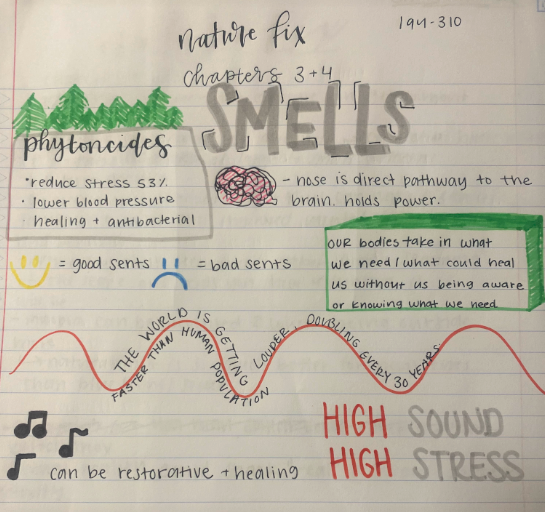 nature fix
194-310
chapters 3+4
SMELLS
phytoncides
• reduce stress 53%
• lower blood pressure
healing + antibacterial
- nose is direct pathway to the
brain. holds power.
= good sents
= bad sents
OUR bodies take in what
we need / what could heal
us without us being aware
or knowing what we need
THE WORLD IS GETTING LOUDER, DOUBLING EVERY 30 YEARS.
FASTER THAN HUMAN POPULATION
HIGH SOUND
HIGH STRESS
can be restorative + healing